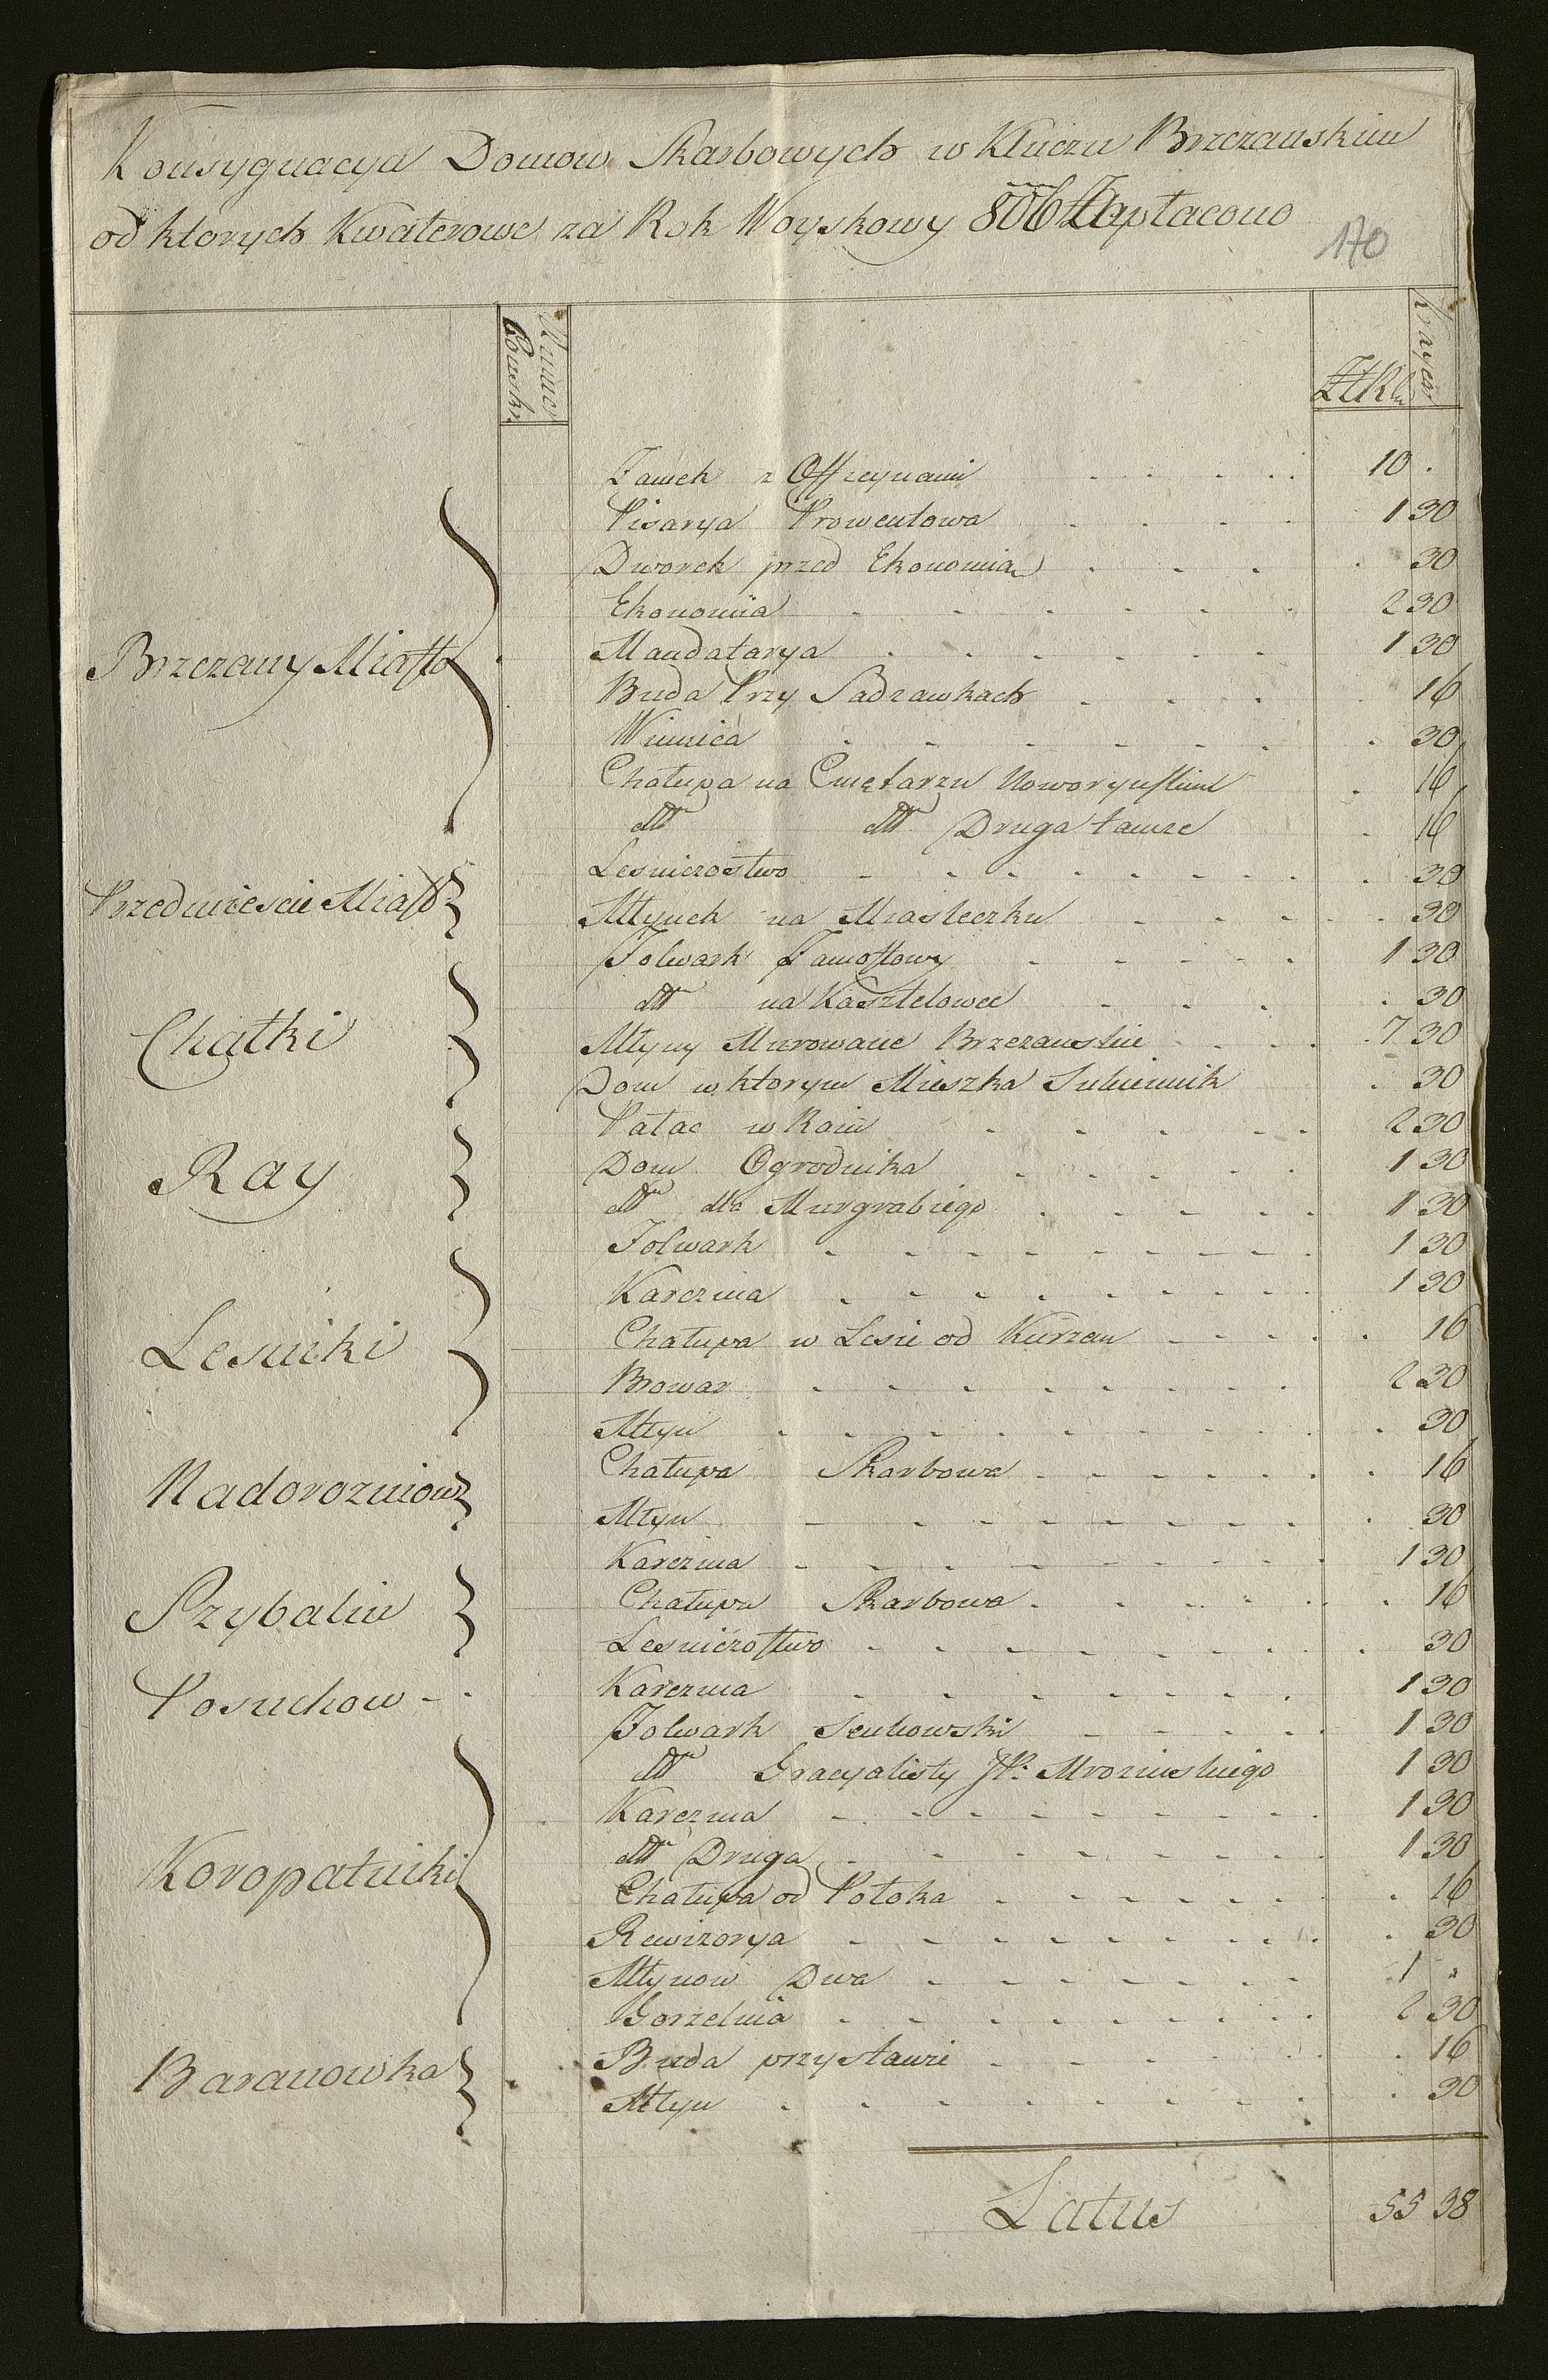 Konsygnacya Domow Skarbowych w Kluczu Brzezanskim
od ktorych Kwaterowe za Rok Woyskowy 806 Zapłacono
170
Numer
Konskr.
ZłRh
Kraycar
Zamek z Officynami 10 .
Pisarya Prowentowa 1 30
Dworek przed Ekonomią . 30
Ekonomia 2 30
Brzezany Miasto
Mandatarya 1 30
Buda Przy Sadzawkach . 16
Winnica . 30
Chałupa na Cmętarzu Noworynskim . 16
dtt dtt Druga tamze . 16
Przedmiescie Miast
Lesniczostwo . 30
Młynek na Miasteczku . 30
Chatki
Folwark Zamostowy 1 30
dtt na Kasztelowce . 30
Młyny Murowane Brzezanskie 7 30
Dom w ktorym Mieszka Sukiennik . 30
Ray
Pałac w Raiu 2 30
Dom Ogrodnika 1 30
dtt dla Murgrabiego 1 30
Lesniki
Folwark 1 30
Karczma 1 30
Chałupa w Lesie od Kurzan . 16
Browar 2 30
Młyn . 30
Nadorozniow
Chałupa Skarbowa . 16
Młyn . 30
Szybalin
Karczma 1 30
Chałupa Skarbowa . 16
Lesniczostwo . 30
Posuchow
Karczma 1 30
Koropatniki
Folwark 1 30
dtt Gracyalisty JP. Mrozinskiego 1 30
Karczma 1 30
dtt Druga 1 30
Chałupa od Potoka . 16
Rewizorya . 30
Młynow Dwa 1 "
Gorzelnia 2 30
Baranowka
Buda przy stawie . 16
Młyn . 30
Latus 55 38